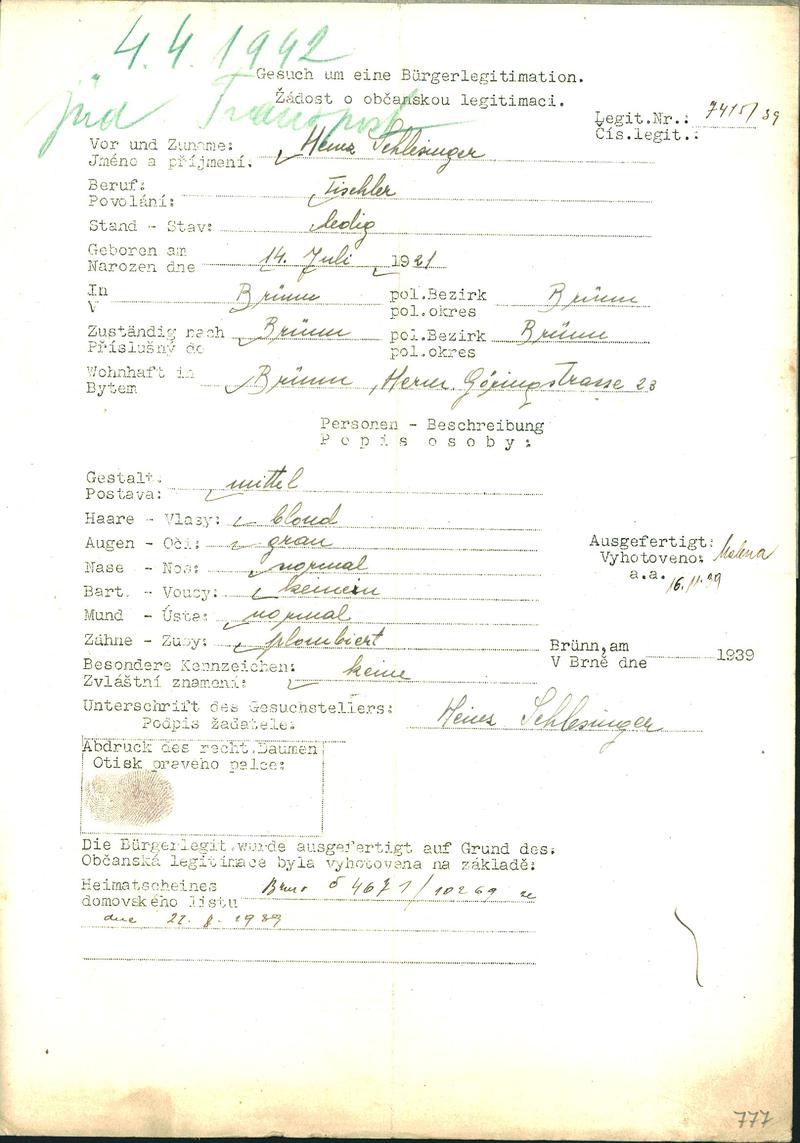 4.4.1942
jüd. Transport
Gesuch um eine Bürgerlegitimation.
Žádost o občanskou legitimaci.
Legit.Nr.: 7415/39
Čís.legit.:
Vor und Zuname: Heinz Schlesinger
Jméno a příjmení:
Beruf: Tischler
Povolání:
Stand - Stav: ledig
Geboren am 14. Juli 1921
Narozen dne
In Brünn pol.Bezirk Brünn
V pol.okres
Zuständig nach Brünn pol.Bezirk Brünn
Příslušný do pol.okres
Wohnhaft in Brünn, Herm. Göringstrasse 23
Bytem
Personen - Beschreibung
Popis osoby:
Gestalt: mittel
Postava:
Haare - Vlasy: blond
Augen - Oči: grau
Ausgefertigt:
Nase - Nos: normal
Vyhotoveno:
a.a. 16.11.39
Bart. - Vousy: keinen
Mund - Ústa: normal
Zähne - Zuby: plombiert
Brünn,am 1939
V Brně dne
Besondere Kennzeichen: keine
Zvláštní znamení:
Unterschrift des Gesuchstellers: Heinz Schlesinger
Podpis žadatele:
Abdruck des recht.Daumen
Otisk pravého palce:
Die Bürgerlegit.wurde ausgefertigt auf Grund des:
Občanská legitimace byla vyhotovena na základě:
Heimatscheines Brno č 4671/10269 ze
domovského listu
dne 22. 8. 1939
777